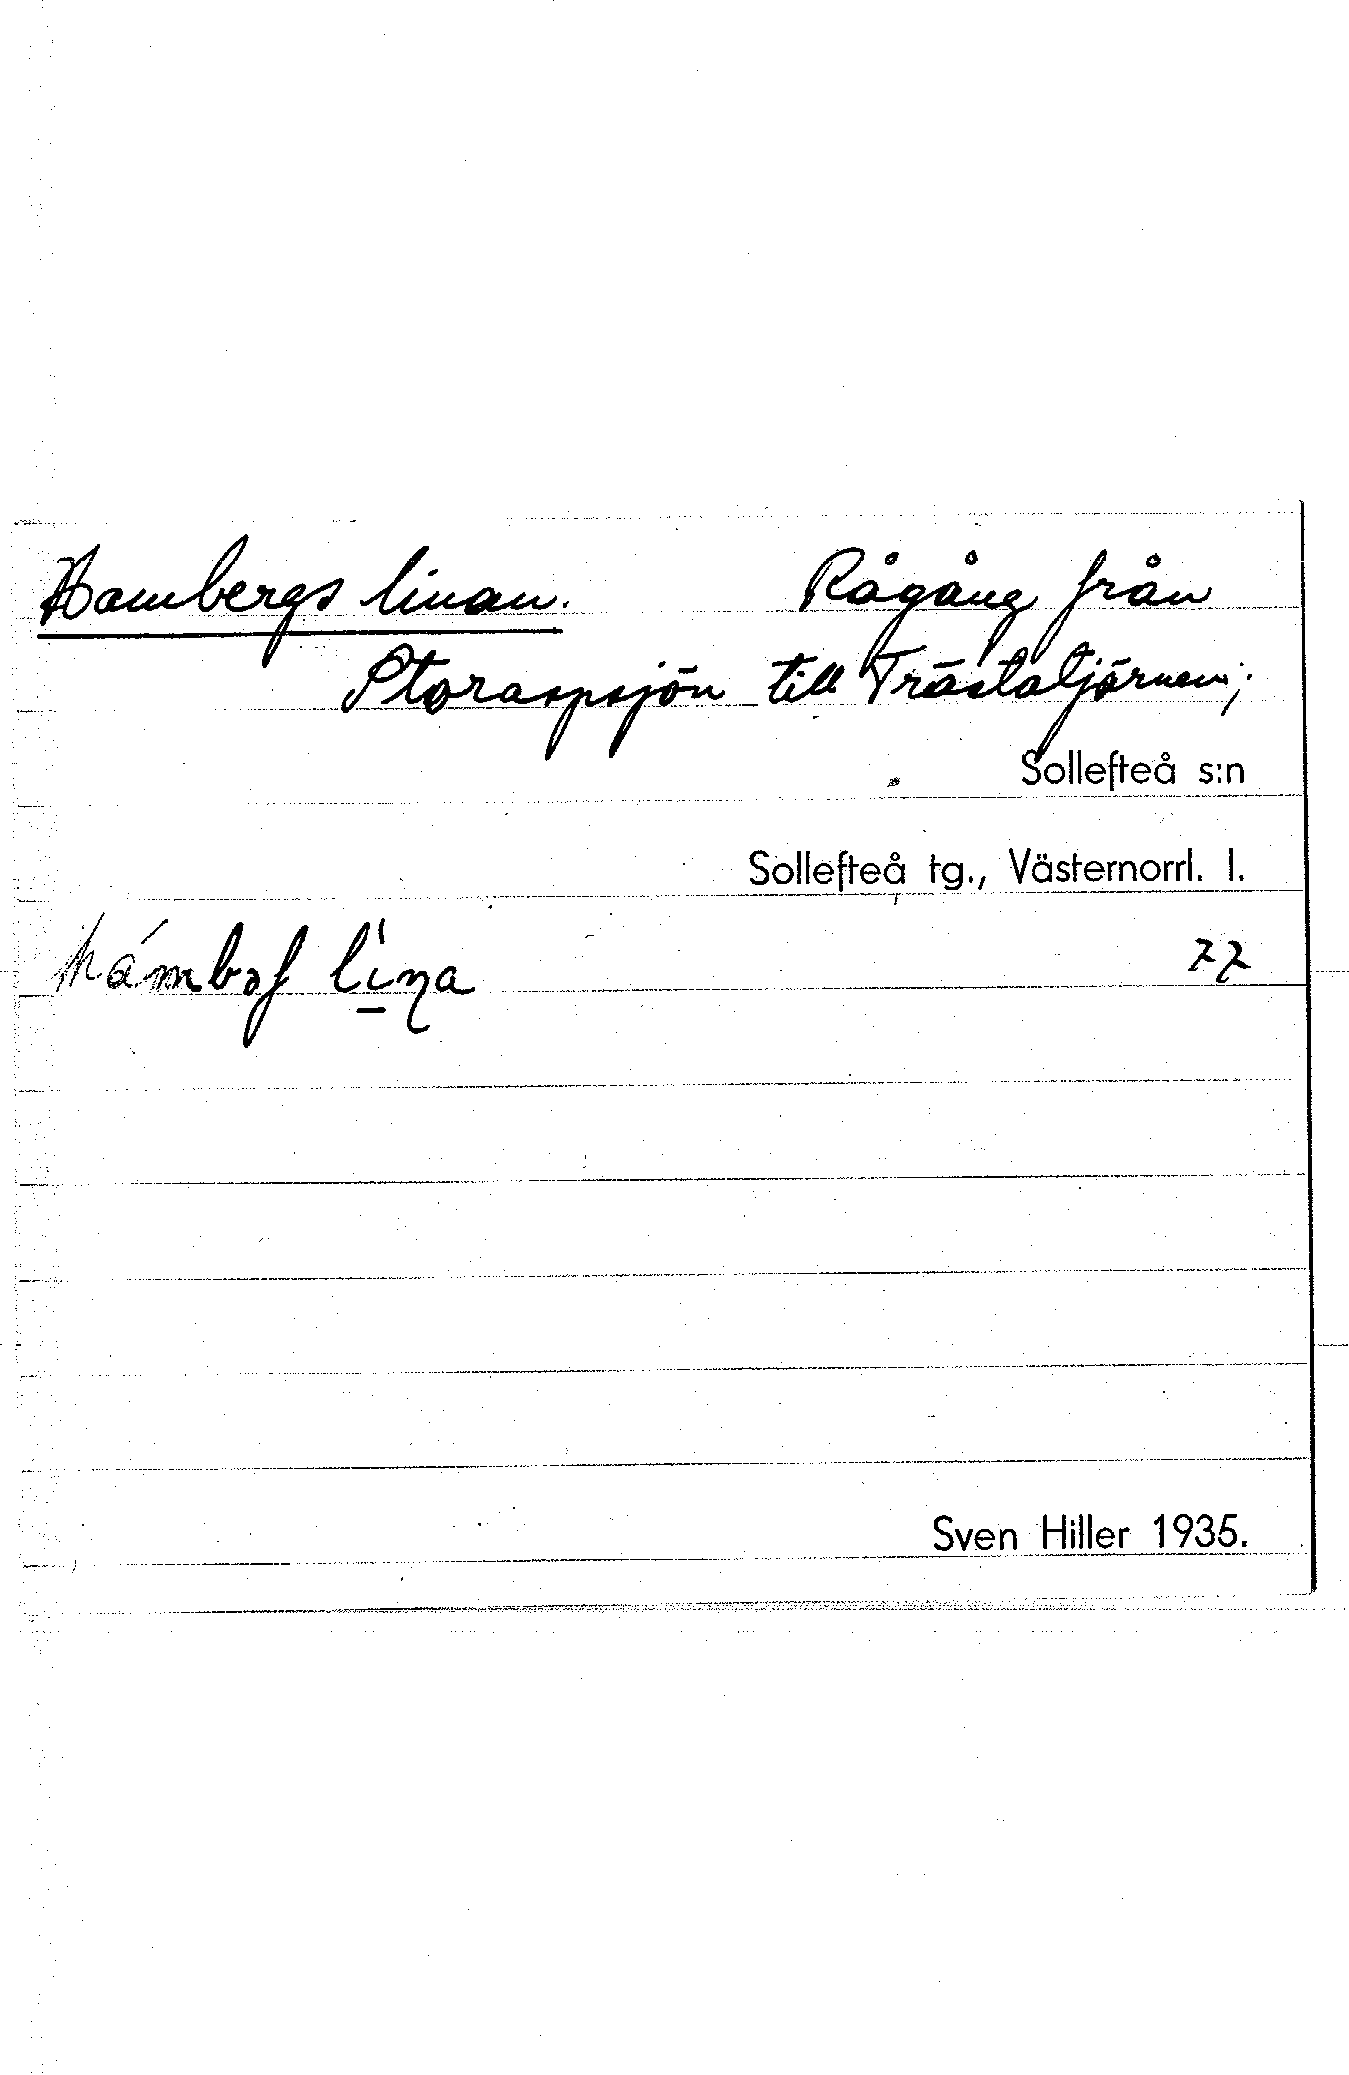 Hambergs linan. Rågång från
Storaspsjön till Tråstatjärnen;
Sollefteå s:n
Sollefteå tg., Västernorrl. l.
hámbəʃ lìn̠a 77
Sven Hiller 1935.